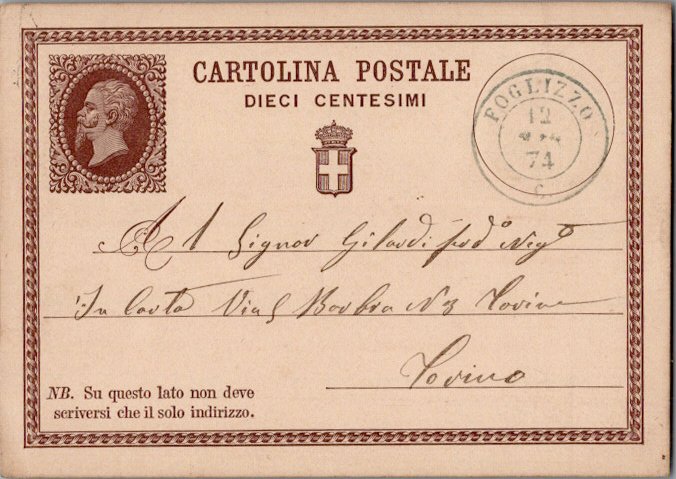 CARTOLINA POSTALE
DIECI CENTESIMI
FOGLIZZO
12
74
C
Al Signor Gilardi
In Carta Via Barbra N 3 Torino
Torino
NB. Su questo lato non deve
scriversi che il solo indirizzo.